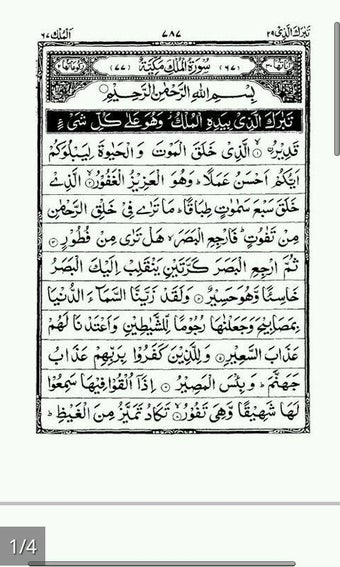 تَبٰرَكَ الَّذِىۡ ٢٩ ٧٨٧ اَلۡمُلۡك ٦٧
(٦٧) سُوۡرَةُ الۡمُلۡكِ مَكِّيَّةٌ (٧٧)
بِسۡمِ اللهِ الرَّحۡمٰنِ الرَّحِيۡمِ
تَبٰرَكَ الَّذِىۡ بِيَدِهِ الۡمُلۡكُ وَهُوَ عَلٰى كُلِّ شَىۡءٍ
قَدِيۡرُۙ ۱ اۨلَّذِىۡ خَلَقَ الۡمَوۡتَ وَالۡحَيٰوةَ لِيَبۡلُوَكُمۡ
اَيُّكُمۡ اَحۡسَنُ عَمَلًاؕ وَهُوَ الۡعَزِيۡزُ الۡغَفُوۡرُۙ ۲ الَّذِىۡ
خَلَقَ سَبۡعَ سَمٰوٰتٍ طِبَاقًاؕ مَا تَرٰى فِىۡ خَلۡقِ الرَّحۡمٰنِ
مِنۡ تَفٰوُتٍؕ فَارۡجِعِ الۡبَصَرَۙ هَلۡ تَرٰى مِنۡ فُطُوۡرٍ ۳
ثُمَّ ارۡجِعِ الۡبَصَرَ كَرَّتَيۡنِ يَنۡقَلِبۡ اِلَيۡكَ الۡبَصَرُ
خَاسِئًا وَّهُوَ حَسِيۡرٌ ۴ وَلَقَدۡ زَيَّنَّا السَّمَآءَ الدُّنۡيَا
بِمَصَابِيۡحَ وَجَعَلۡنٰهَا رُجُوۡمًا لِّلشَّيٰطِيۡنِ وَاَعۡتَدۡنَا لَهُمۡ
عَذَابَ السَّعِيۡرِ ۵ وَلِلَّذِيۡنَ كَفَرُوۡا بِرَبِّهِمۡ عَذَابُ
جَهَنَّمَؕ وَبِئۡسَ الۡمَصِيۡرُ ۶ اِذَاۤ اُلۡقُوۡا فِيۡهَا سَمِعُوۡا
لَهَا شَهِيۡقًا وَّهِىَ تَفُوۡرُۙ ۷ تَكَادُ تَمَيَّزُ مِنَ الۡغَيۡظِؕ
1/4